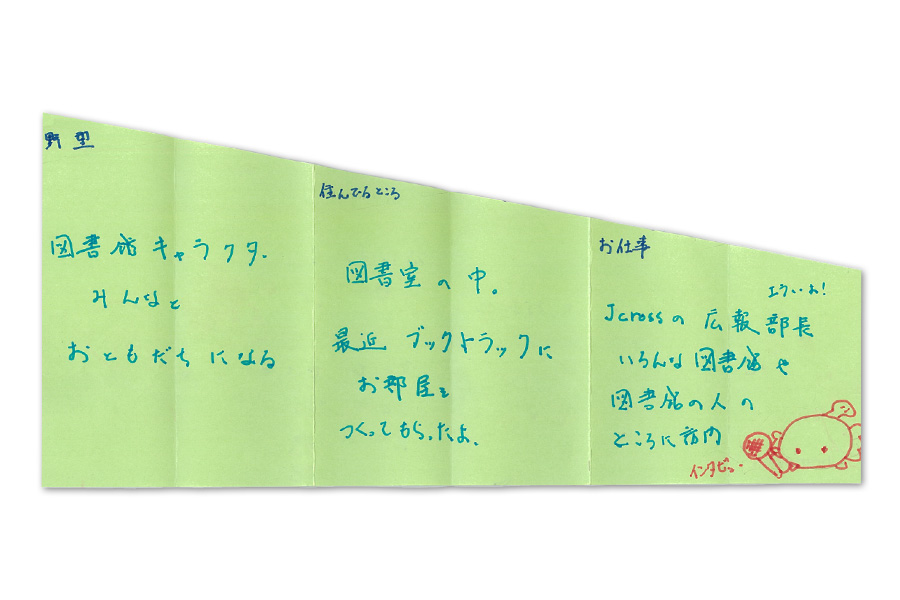 野望
図書館キャラクタ.
みんなと
おともだちになる
住んでるところ
図書室の中。
最近ブックトラックに
お部屋を
つくってもらったよ.
お仕事
Jcrossの広報部長
いろんな図書館や
図書館の人の
ところに訪問
インタビュー